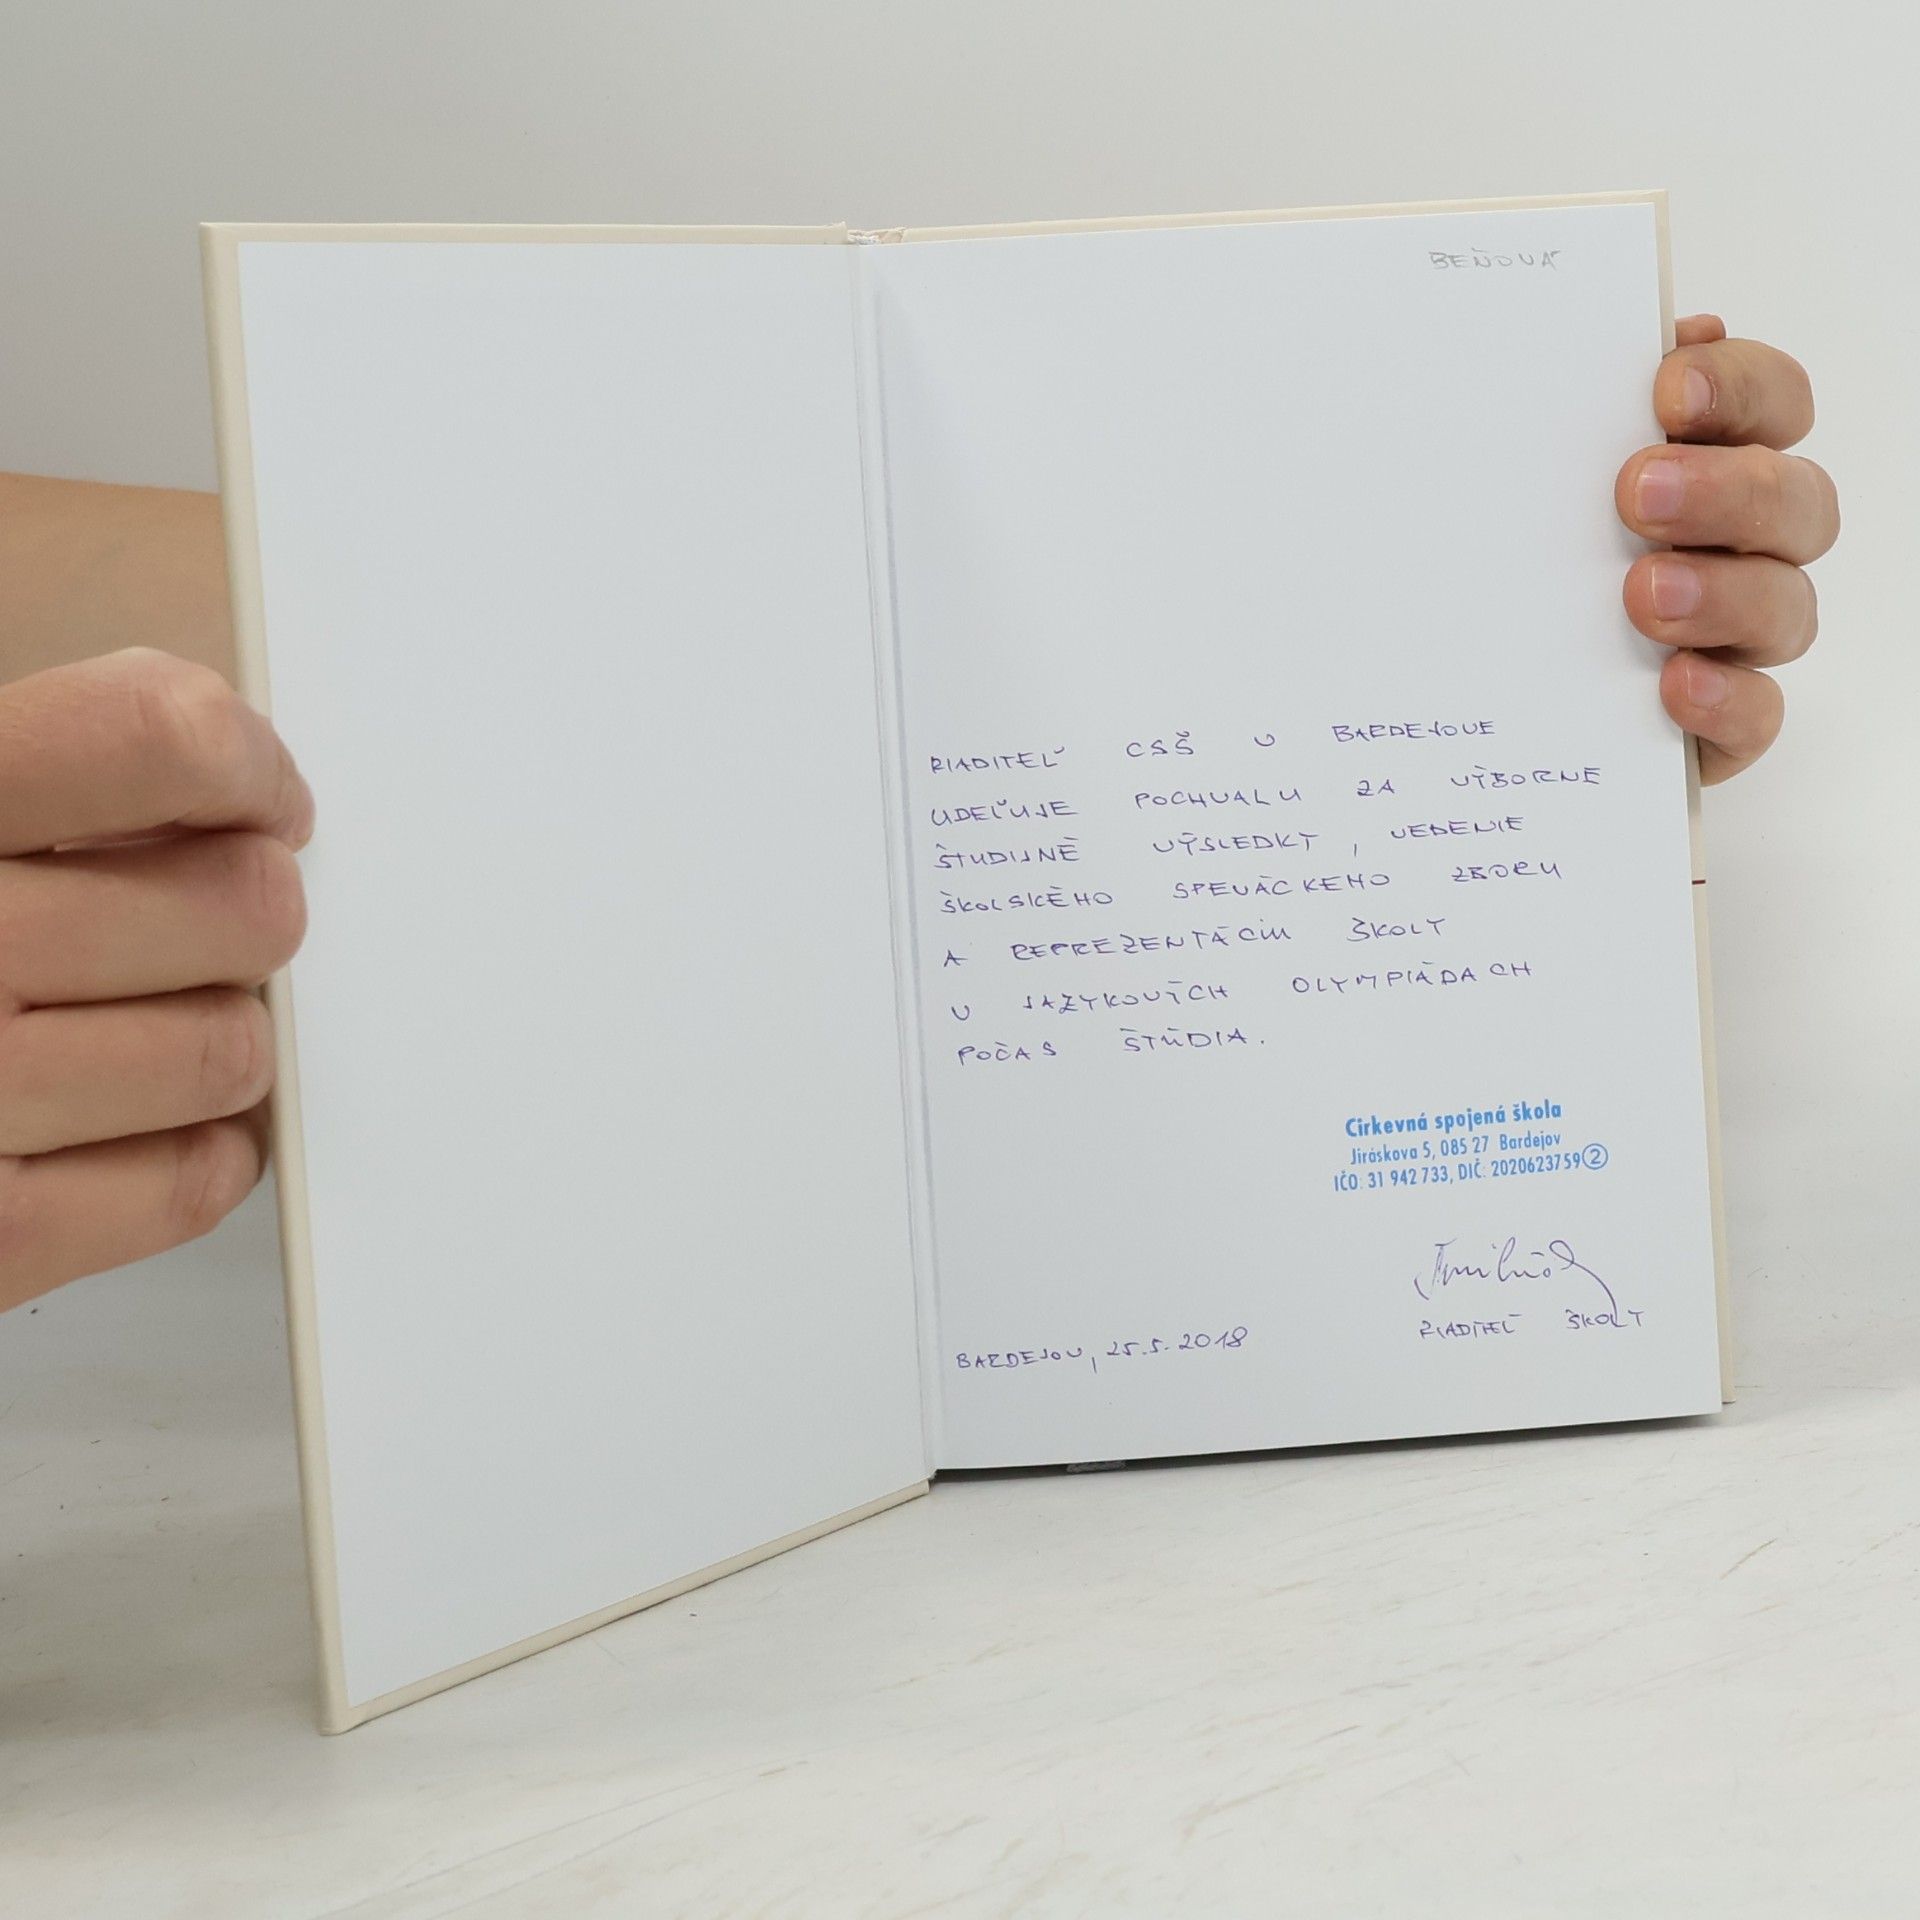 BEŇOVÁ
RIADITEĽ CSŠ V BARDEJOVE
UDEĽUJE POCHVALU ZA VÝBORNÉ
ŠTUDIJNÉ VÝSLEDKY, VEDENIE
ŠKOLSKÉHO SPEVÁCKEHO ZBORU
A REPREZENTÁCIU ŠKOLY
V JAZYKOVÝCH OLYMPIÁDACH
POČAS ŠTÚDIA.
Cirkevná spojená škola
Jiráskova 5, 085 27 Bardejov
IČO: 31 942 733, DIČ: 2020623759 2
RIADITEĽ ŠKOLY
BARDEJOV, 25.5.2018